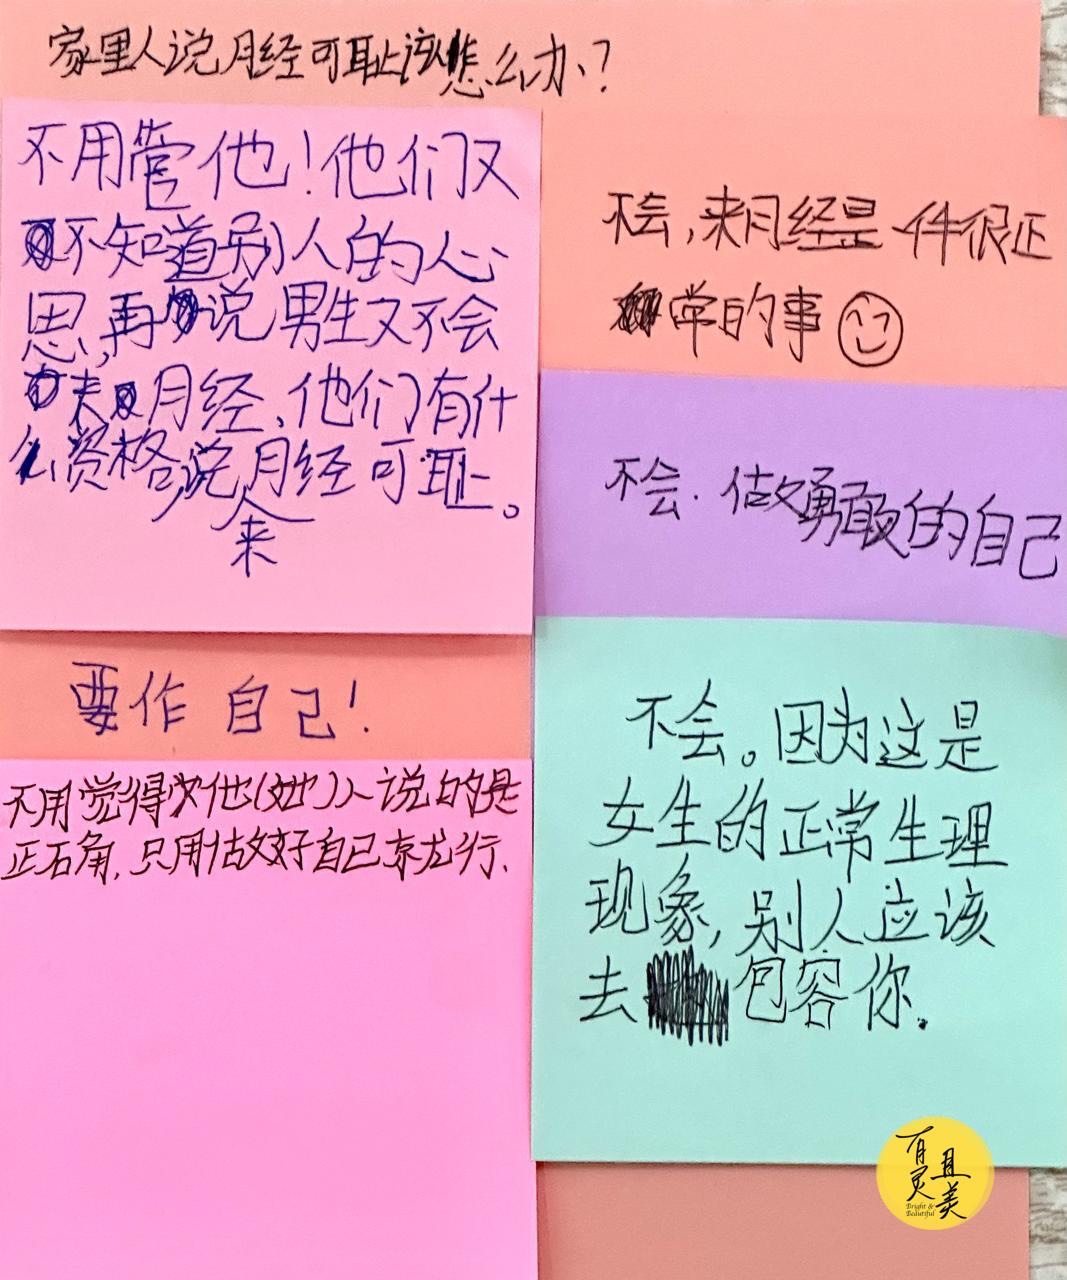 家里人说月经可耻该怎么办?
不用管他!他们又
不知道别人的心
思,再说男生又不会
来月经、他们有什
么资格说来月经可耻。
要作自己!
不用觉得他(她)人说的是
正确,只用做好自己就行.
不会,来月经是一件很正
常的事
不会.做勇敢的自己
不会。因为这是
女生的正常生理
现象,别人应该
去包容你.
有灵且美
Bright &
Beautiful